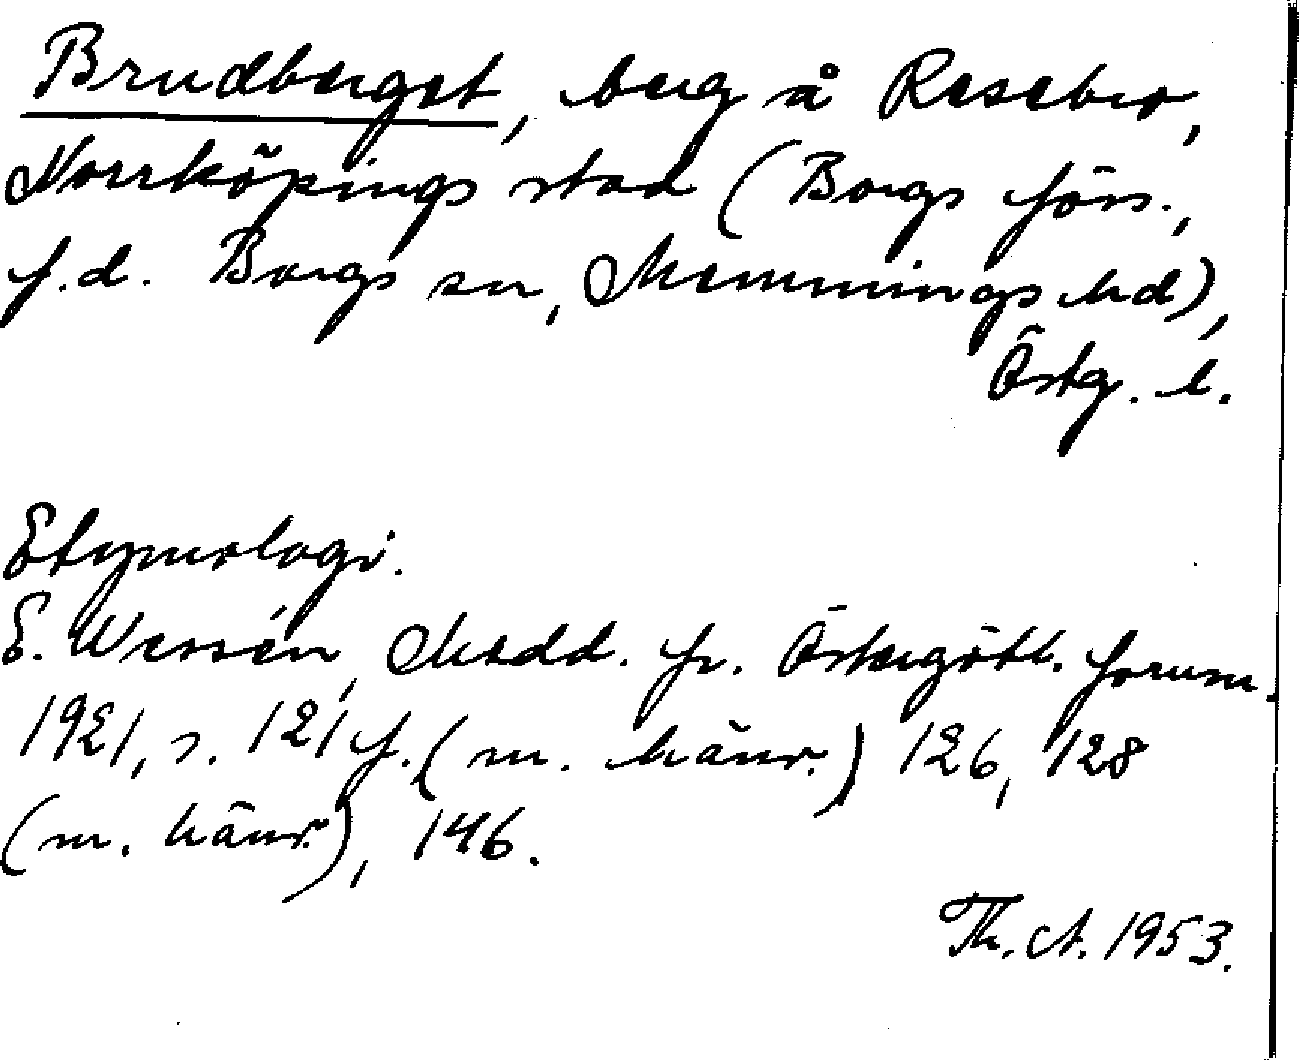 Brudberget, berg å Resebro,
Norrköpings stad (Borgs förs.,
f.d. Borgs sn, Memmings hd),
Östg. l.
Etymologi.
E. Wessén, Medd. fr. Östergötl. fornm.
1921, s. 121 f. (m. hänv.) 126, 128
(m. hänv.), 146.
Th. A. 1953.